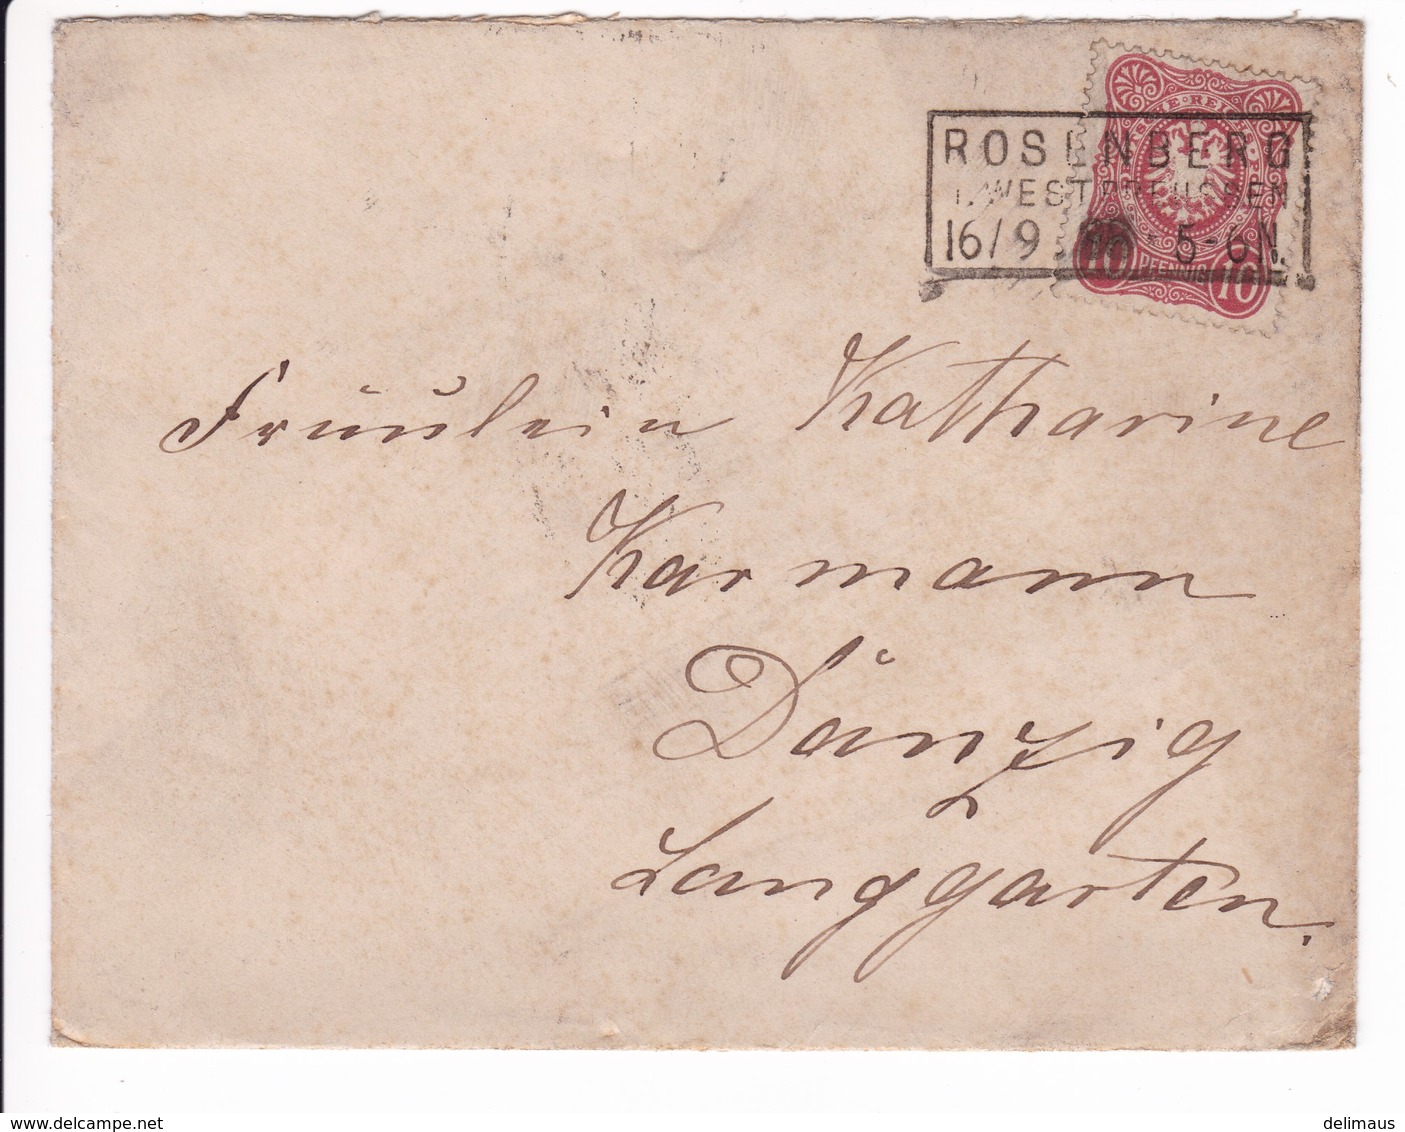 ROSENBERG
I. WESTPREUSSEN
16/9 5-6N.
REICHS
10 PFENNIG 10
Fräulein Katharine
Karmann
Danzig
Langgarten.
www.delcampe.net
delimaus